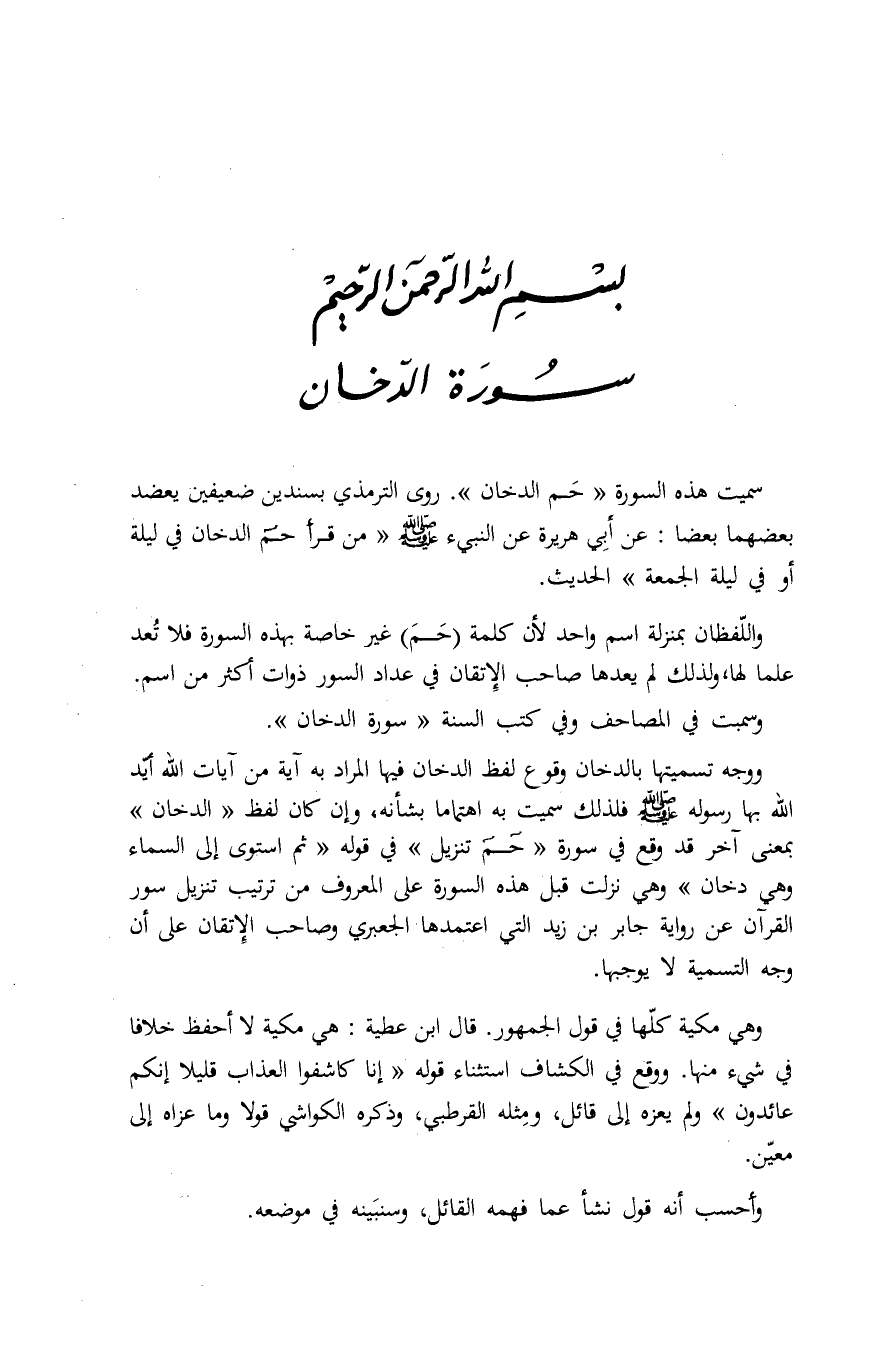 بسم الله الرحمن الرحيم
سورة الدخان
سميت هذه السورة « حَـم الدخان ». روى الترمذي بسندين ضعيفين يعضد
بعضهما بعضا : عن أبي هريرة عن النبيء ﷺ « من قـرأ حـمّ الدخان في ليلة
أو في ليلة الجمعة » الحديث.
واللّفظان بمنزلة اسم واحد لأن كلمة (حَـمَ) غير خاصة بهذه السورة فلا تُعد
علما لها، ولذلك لم يعدها صاحب الإتقان في عداد السور ذوات أكثر من اسم.
وسميت في المصاحف وفي كتب السنة « سورة الدخان ».
ووجه تسميتها بالدخان وقوع لفظ الدخان فيها المراد به آية من آيات الله أيّد
الله بها رسوله ﷺ فلذلك سميت به اهتماما بشأنه، وإن كان لفظ « الدخان »
بمعنى آخر قد وقع في سورة « حَـمَ تنزيل » في قوله « ثم استوى إلى السماء
وهي دخان » وهي نزلت قبل هذه السورة على المعروف من ترتيب تنزيل سور
القرآن عن رواية جابر بن زيد التي اعتمدها الجعبري وصاحب الإتقان على أن
وجه التسمية لا يوجبها.
وهي مكية كلّها في قول الجمهور. قال ابن عطية : هي مكية لا أحفظ خلافا
في شيء منها. ووقع في الكشاف استثناء قوله « إنا كاشفوا العذاب قليلا إنكم
عائدون » ولم يعزه إلى قائل، ومِثله القرطبي، وذكره الكواشي قولا وما عزاه إلى
معيّن.
وأحسب أنه قول نشأ عما فهمه القائل، وسنبَينه في موضعه.